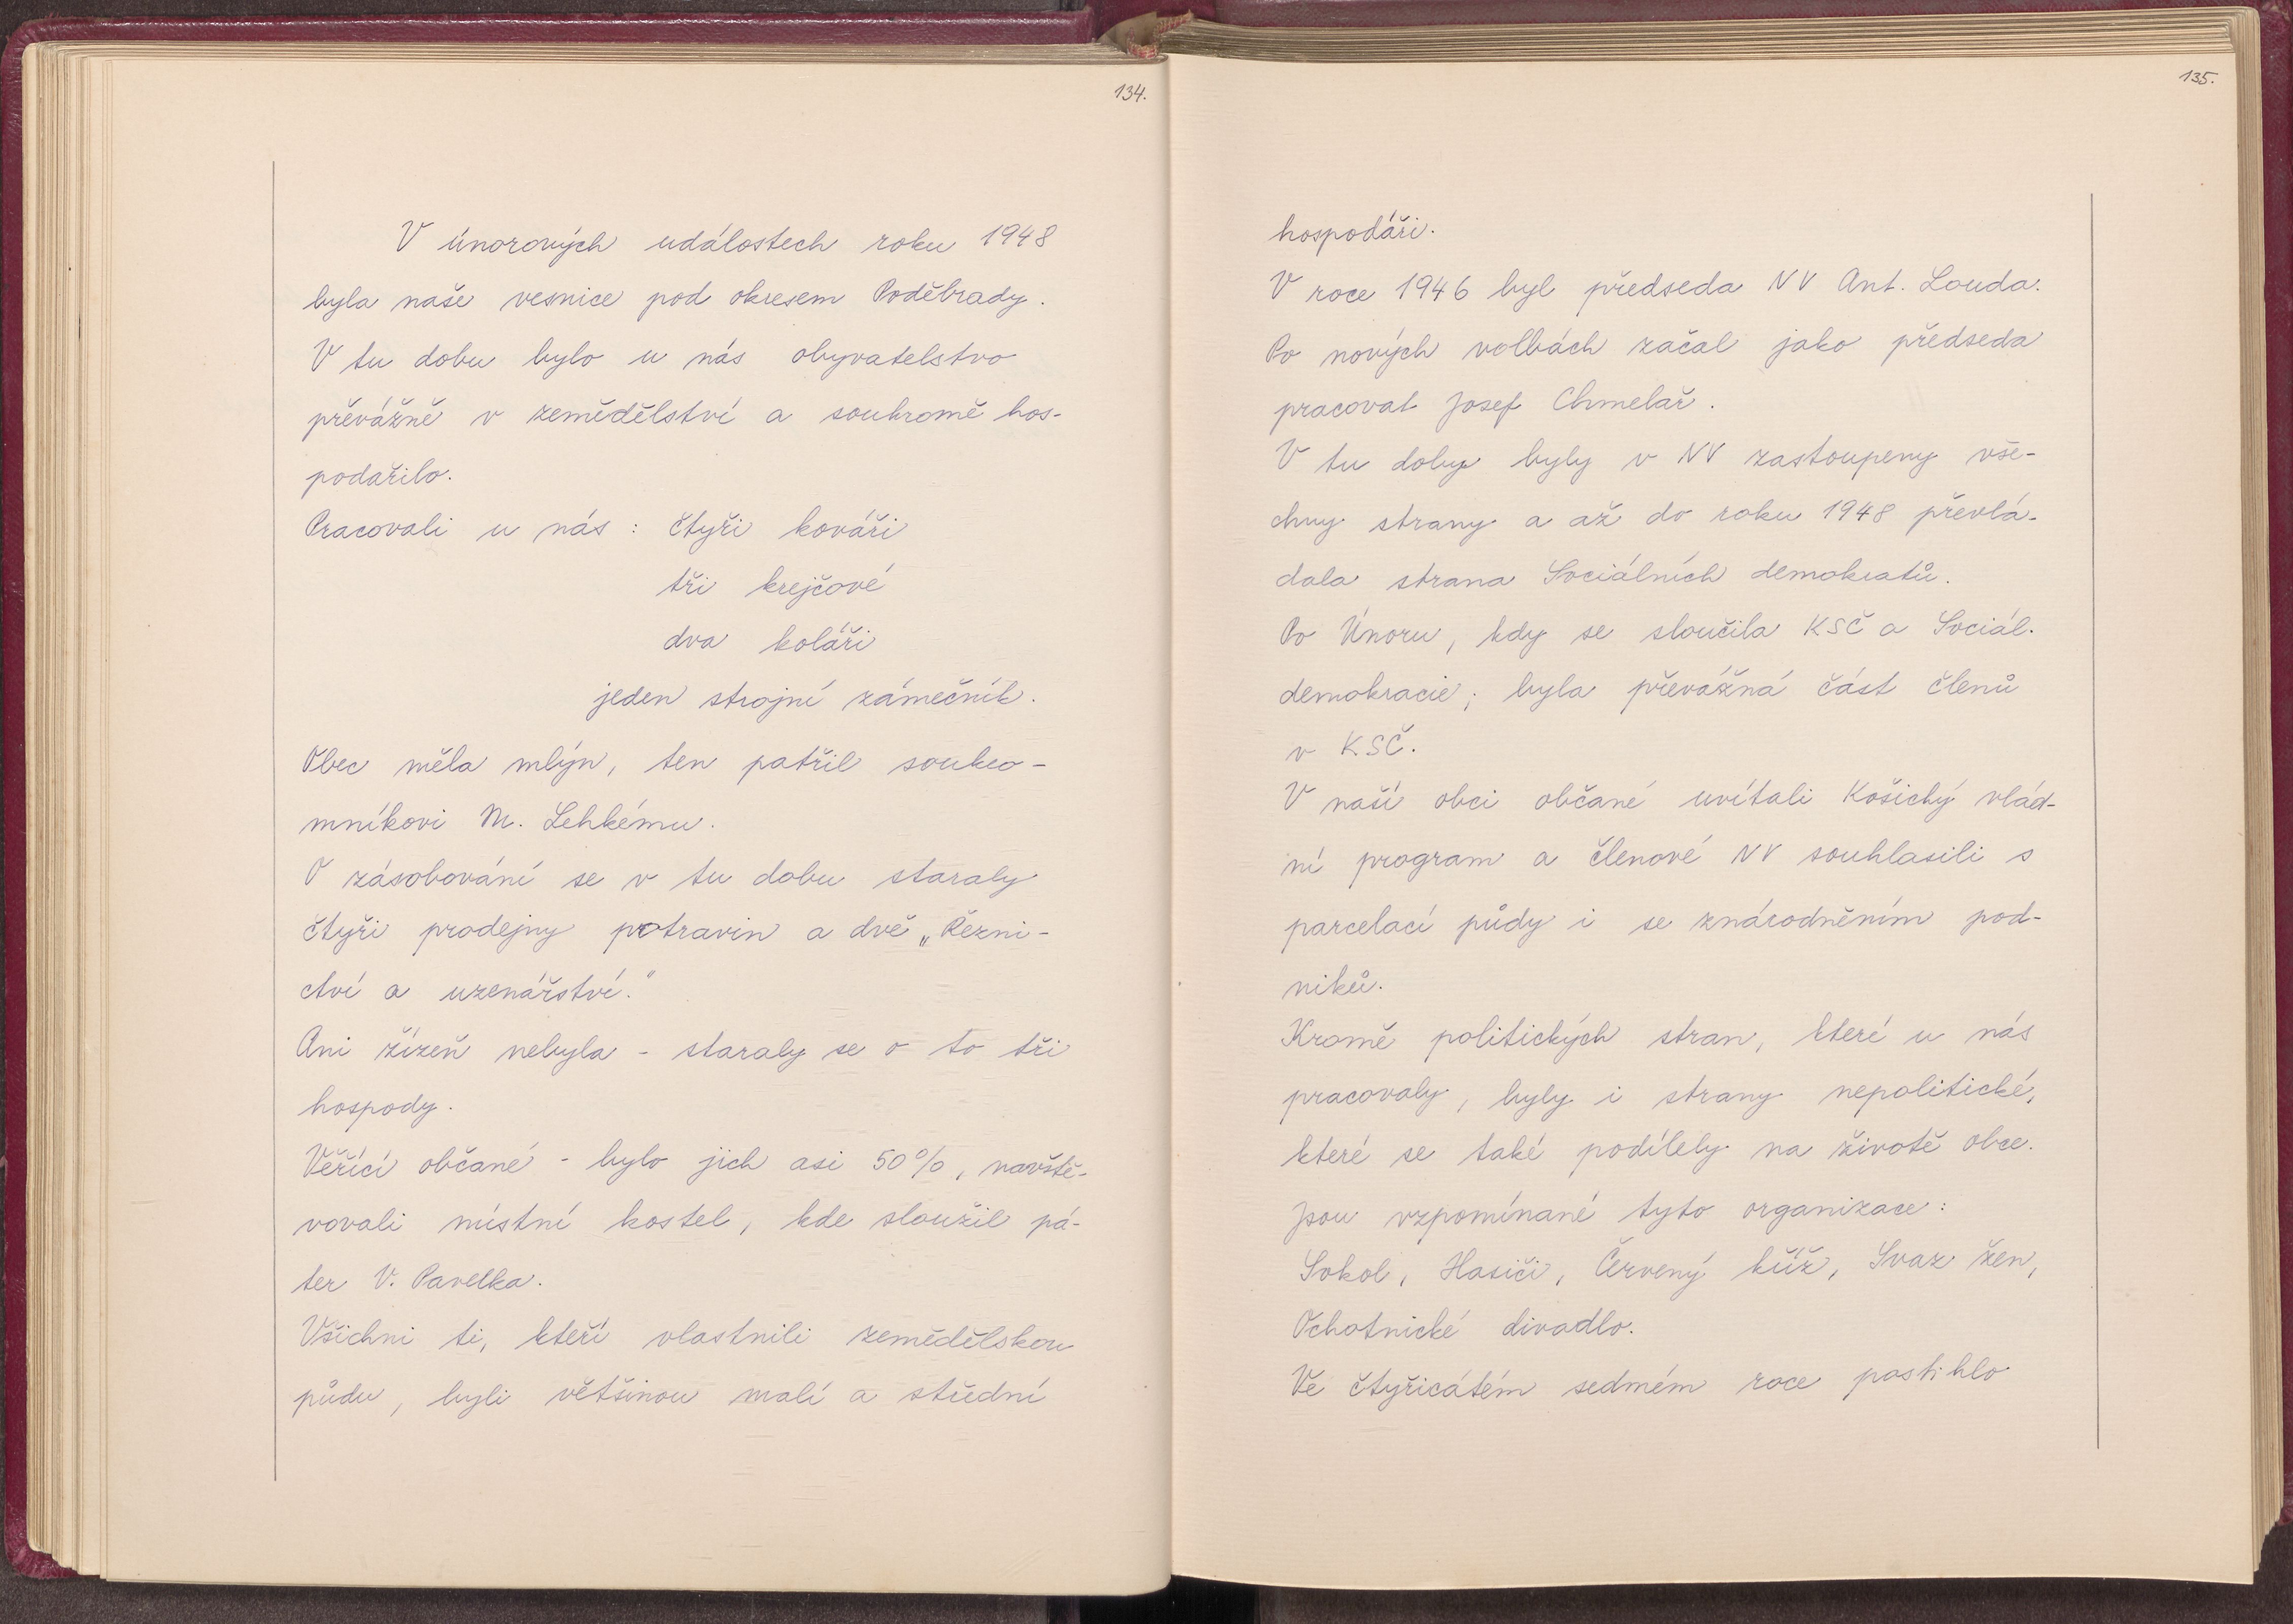 134.
V únorových událostech roku 1948
byla naše vesnice pod okresem Poděbrady.
V tu dobu bylo u nás obyvatelstvo
převážně v zemědělství a soukromě hos-
podařilo.
Pracovali u nás: čtyři kováři
tři krejčové
dva koláři
jeden strojní zámečník.
Obec měla mlýn, ten patřil soukro-
mníkovi M. Lehkému.
O zásobování se v tu dobu staraly
čtyři prodejny potravin a dvě „Řezni-
ctví a uzenářství."
Ani žízeň nebyla - staraly se o to tři
hospody.
Věřící občané - bylo jich asi 50%, navště-
vovali místní kostel, kde sloužil pá-
ter V. Pavelka.
Všichni ti, kteří vlastnili zemědělskou
půdu, byli většinou malí a střední
135.
hospodáři.
V roce 1946 byl předseda NV Ant. Louda.
Po nových volbách začal jako předseda
pracovat Josef Chmelař.
V tu doby byly v NV zastoupeny vše-
chny strany a až do roku 1948 převlá-
dala strana Sociálních demokratů.
Po Únoru, kdy se sloučila KSČ a Sociál.
demokracie, byla převážná část členů
v KSČ.
V naší obci občané uvítali Košický vlád-
ní program a členové NV souhlasili s
parcelací půdy i se znárodněním pod-
niků.
Kromě politických stran, které u nás
pracovaly, byly i strany nepolitické,
které se také podílely na životě obce.
Jsou vzpomínané tyto organizace:
Sokol, Hasiči, Červený kříž, Svaz žen,
Ochotnické divadlo.
Ve čtyřicátém sedmém roce postihlo